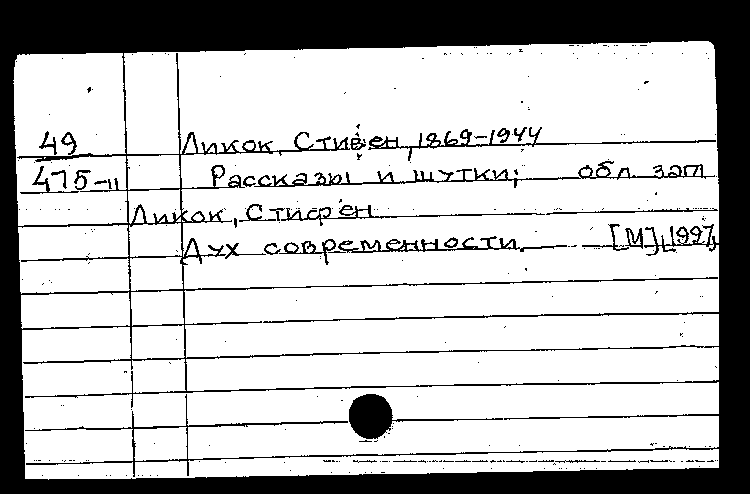 49 Ликок, Стивен, 1869-1944
475-11 Рассказы и шутки; обл. загл
Ликок, Стифен
Дух современности. [М], 1997,